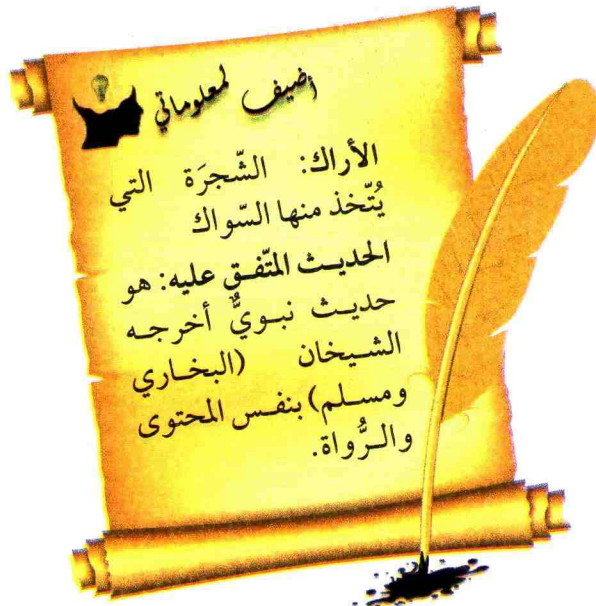 أضيف لمعلوماتي
الأراك: الشّجرَة التي
يُتّخذ منها السّواك
الحديث المتّفق عليه: هو
حديث نبويٌّ أخرجه
الشيخان (البخاري
ومسلم) بنفس المحتوى
والرُّواة.